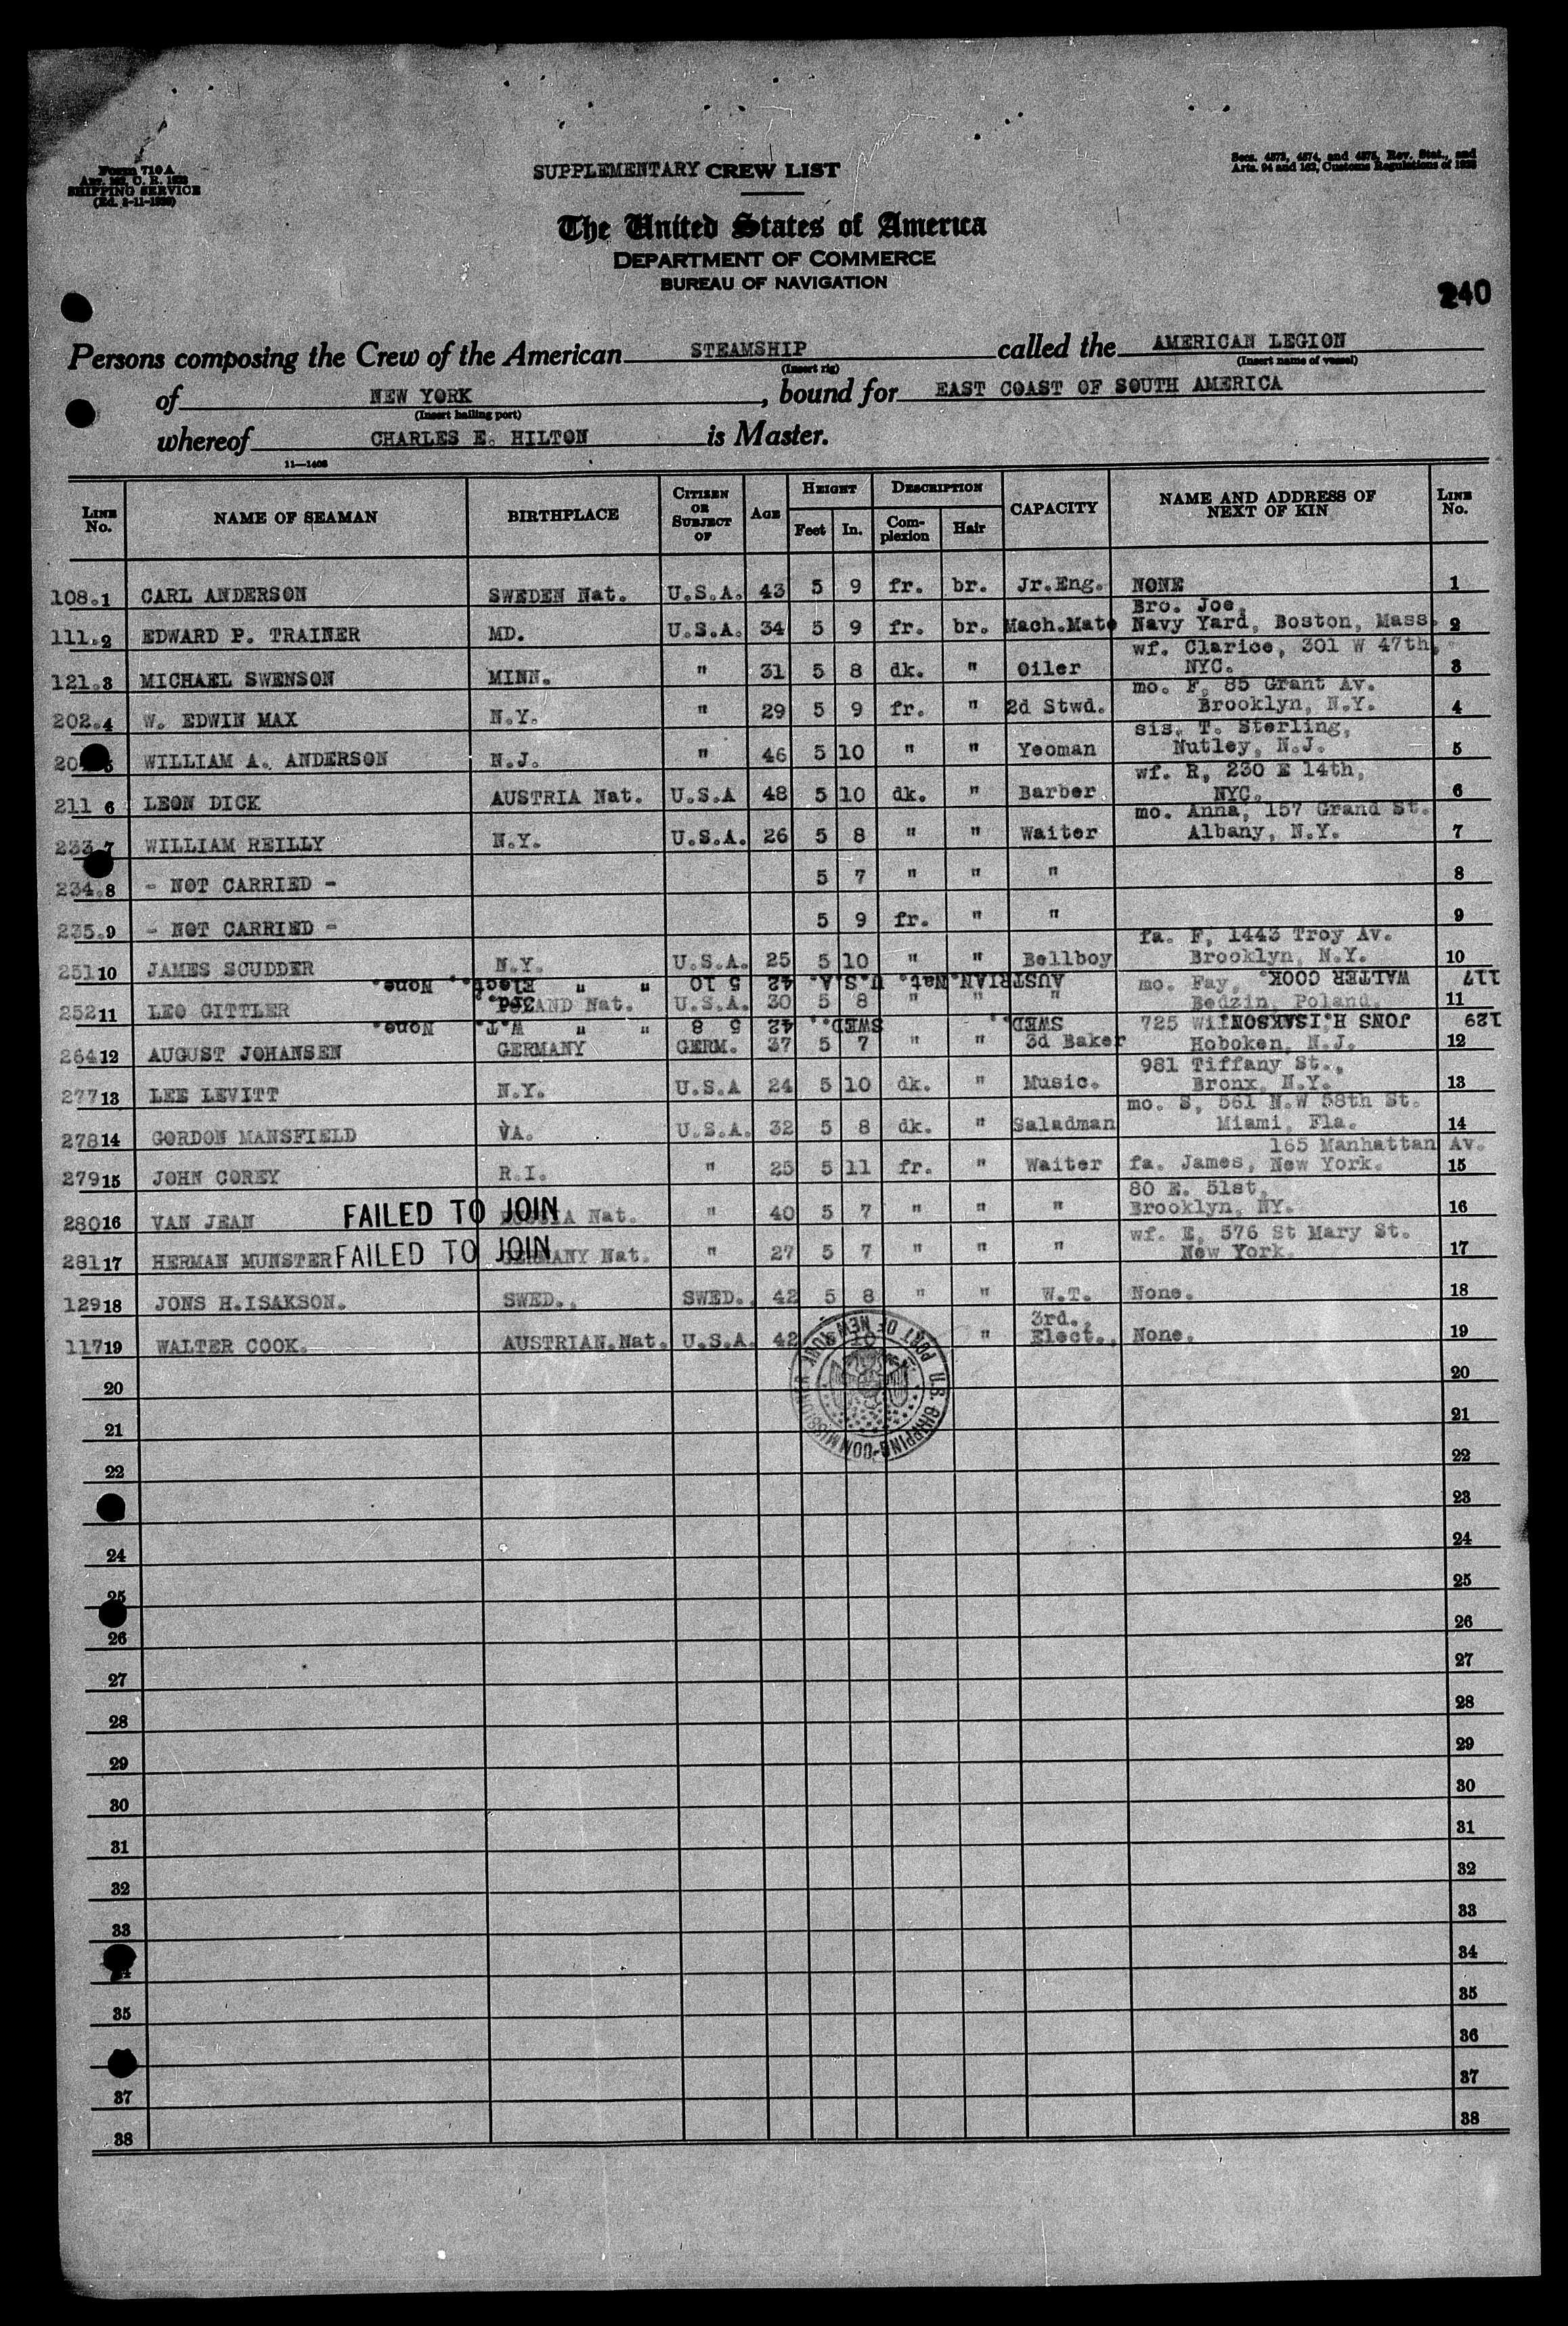 Form 710 A
SHIPPING SERVICE
SUPPLEMENTARY CREW LIST
Secs. 4573, 4574, and 4575, Rev. Stat., and
Arts. 94 and 162, Customs Regulations of
The United States of America
DEPARTMENT OF COMMERCE
BUREAU OF NAVIGATION
240
Persons composing the Crew of the American STEAMSHIP called the AMERICAN LEGION
(Insert rig) (Insert name of vessel)
of NEW YORK, bound for EAST COAST OF SOUTH AMERICA
(Insert hailing port)
whereof CHARLES E. HILTON is Master.
11—1406
LINE No. NAME OF SEAMAN BIRTHPLACE CITIZEN OR SUBJECT OF AGE HEIGHT Feet In. DESCRIPTION Complexion Hair CAPACITY NAME AND ADDRESS OF NEXT OF KIN LINE No.
108.1 CARL ANDERSON SWEDEN Nat. U.S.A. 43 5 9 fr. br. Jr.Eng. NONE 1
Bro. Joe,
111.2 EDWARD P. TRAINER MD. U.S.A. 34 5 9 fr. br. Mach.Mate Navy Yard, Boston, Mass. 2
wf. Clarice, 301 W 47th,
121.3 MICHAEL SWENSON MINN. " 31 5 8 dk. " Oiler NYC. 3
mo. F, 85 Grant Av.
202.4 W. EDWIN MAX N.Y. " 29 5 9 fr. " 2d Stwd. Brooklyn, N.Y. 4
sis. T. Sterling,
WILLIAM A. ANDERSON N.J. " 46 5 10 " " Yeoman Nutley, N.J. 5
wf. R, 230 E 14th,
211 6 LEON DICK AUSTRIA Nat. U.S.A 48 5 10 dk. " Barber NYC. 6
mo. Anna, 157 Grand St.
233 7 WILLIAM REILLY N.Y. U.S.A. 26 5 8 " " Waiter Albany, N.Y. 7
234.8 - NOT CARRIED - 5 7 " " " 8
235.9 - NOT CARRIED - 5 9 fr. " " 9
fa. F, 1443 Troy Av.
251 10 JAMES SCUDDER N.Y. U.S.A. 25 5 10 " " Bellboy Brooklyn, N.Y. 10
117 WALTER COOK. AUSTRIAN.Nat. U.S.A. 42 5 10 " " 3rd. Elect., None.
mo. Fay,
252 11 LEO GITTLER POLAND Nat. U.S.A. 30 5 8 " " " Bedzin, Poland. 11
129 JONS H.ISAKSON. SWED., SWED., 42 5 8 " " W.T. None.
725
264 12 AUGUST JOHANSEN GERMANY GERM. 37 5 7 " " 3d Baker Hoboken, N.J. 12
981 Tiffany St.,
277 13 LEE LEVITT N.Y. U.S.A 24 5 10 dk. " Music. Bronx, N.Y. 13
mo. S, 561 N.W 58th St.
278 14 GORDON MANSFIELD VA. U.S.A. 32 5 8 dk. " Saladman Miami, Fla. 14
165 Manhattan Av.
279 15 JOHN COREY R.I. " 25 5 11 fr. " Waiter fa. James, New York. 15
80 E. 51st,
280 16 VAN JEAN FAILED TO JOIN Nat. " 40 5 7 " " " Brooklyn, NY. 16
wf. E, 576 St Mary St.
281 17 HERMAN MUNSTER FAILED TO JOIN GERMANY Nat. " 27 5 7 " " " New York. 17
129 18 JONS H.ISAKSON. SWED., SWED., 42 5 8 " " W.T. None. 18
3rd.,
117 19 WALTER COOK. AUSTRIAN.Nat. U.S.A. 42 5 10 " Elect., None. 19
U.S. SHIPPING COMMISSIONER PORT OF NEW YORK
20 20
21 21
22 22
23
24 24
25 25
26 26
27 27
28 28
29 29
30 30
31 31
32 32
33 33
34
35 35
36
37 37
38 38